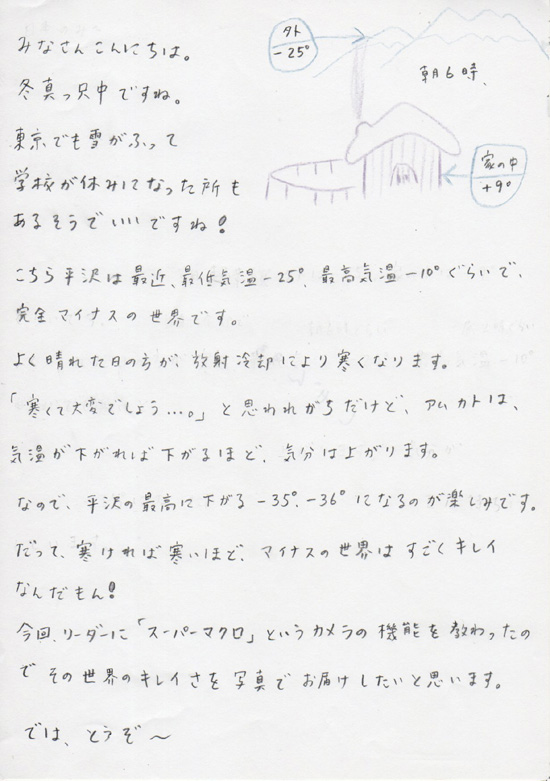 みなさんこんにちは。
冬真っ只中ですね。
東京でも雪がふって
学校が休みになった所も
あるそうでいいですね!
外
-25°
朝6時、
家の中
+9°
こちら平沢は最近、最低気温-25°、最高気温-10°ぐらいで、
完全マイナスの世界です。
よく晴れた日の方が、放射冷却により寒くなります。
「寒くて大変でしょう…。」と思われがちだけど、アムカトは、
気温が下がれば下がるほど、気分は上がります。
なので、平沢の最高に下がる-35°、-36°になるのが楽しみです。
だって、寒ければ寒いほど、マイナスの世界はすごくキレイ
なんだもん!
今回、リーダーに「スーパーマクロ」というカメラの機能を教わったの
でその世界のキレイさを写真でお届けしたいと思います。
では、どうぞ〜